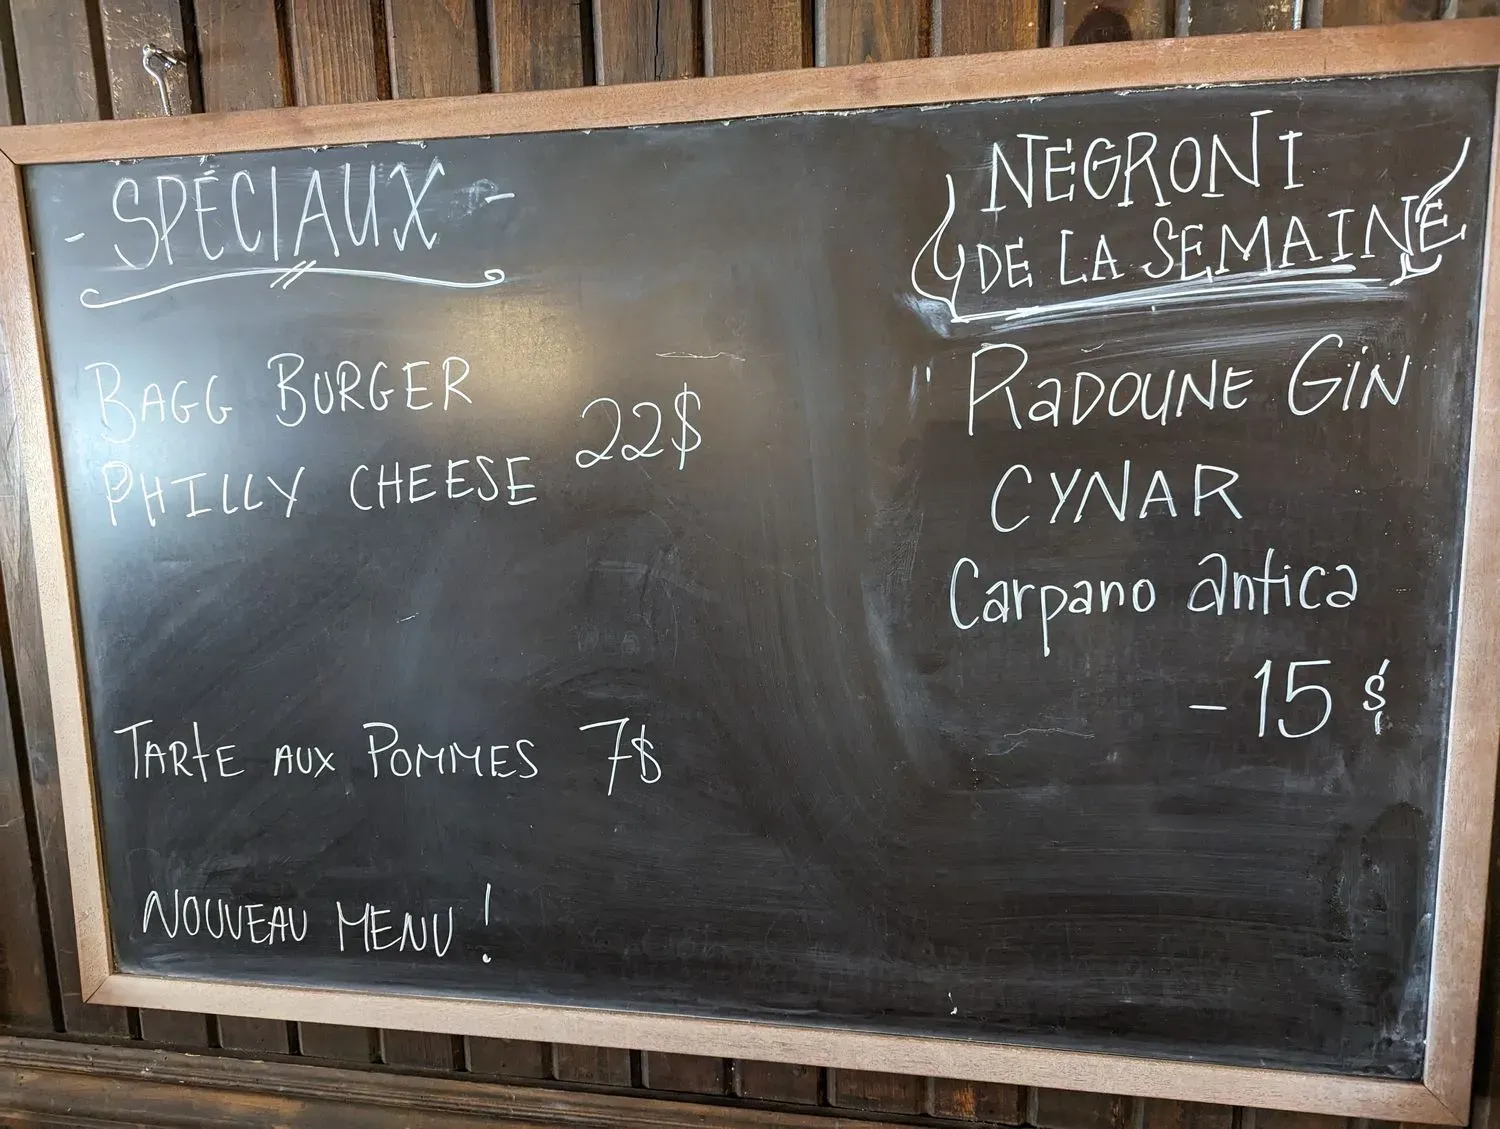 - SPÉCIAUX -
BAGG BURGER
PHILLY CHEESE 22$
TARTE AUX POMMES 7$
NOUVEAU MENU !
NEGRONI
DE LA SEMAINE
RADOUNE GIN
CYNAR
Carpano antica
- 15 $